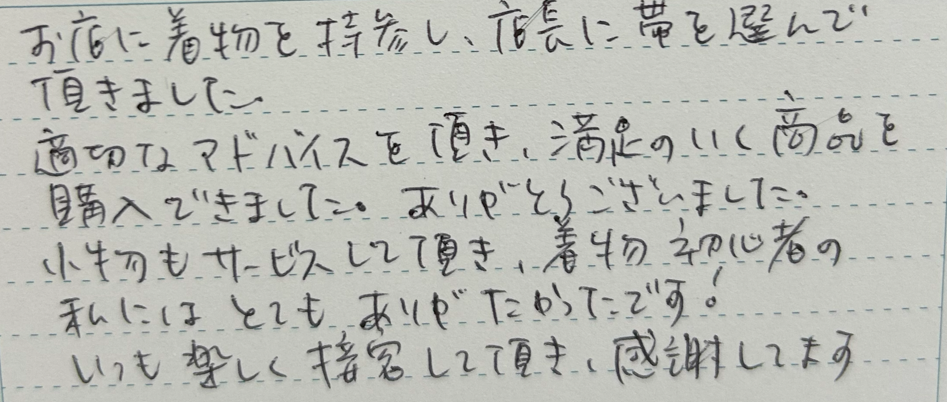 お店に着物を持参し、店長に帯を選んで
頂きました。
適切なアドバイスを頂き、満足のいく商品を
購入できました。ありがとうございました。
小物もサービスして頂き、着物初心者の
私にはとてもありがたかったです!
いつも楽しく接客して頂き、感謝してます